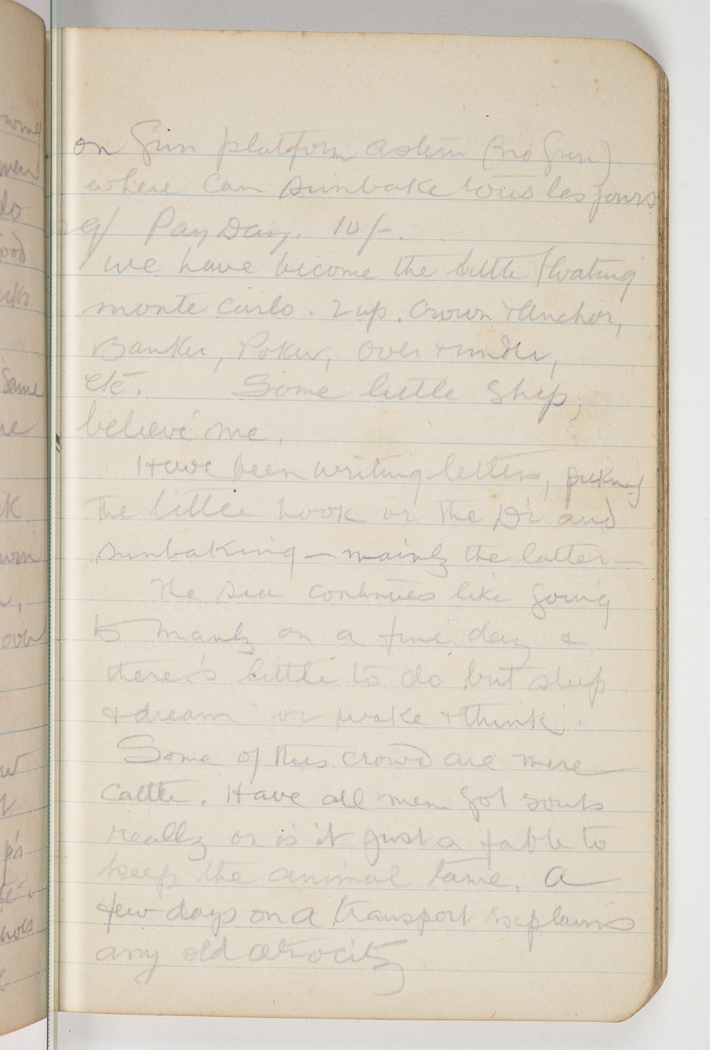 on Gun platform astern (no Gun)
where can sunbake tous les jours
29/ Pay Day. 10/-.
we have become the little floating
monte carlo. 2 up. Crown & Anchor,
Banker, Poker, over & under,
etc. Some little ship,
believe me.
Have been writing letters,
the little book or the Dr and
sunbaking – mainly the latter –
The sea continues like going
to Manly on a fine day &
there's little to do but sleep
& dream or wake & think.
Some of this crowd are mere
cattle. Have all men got souls
really or is it just a fable to
keep the animal tame. A
few days on a transport explains
any old atrocity.